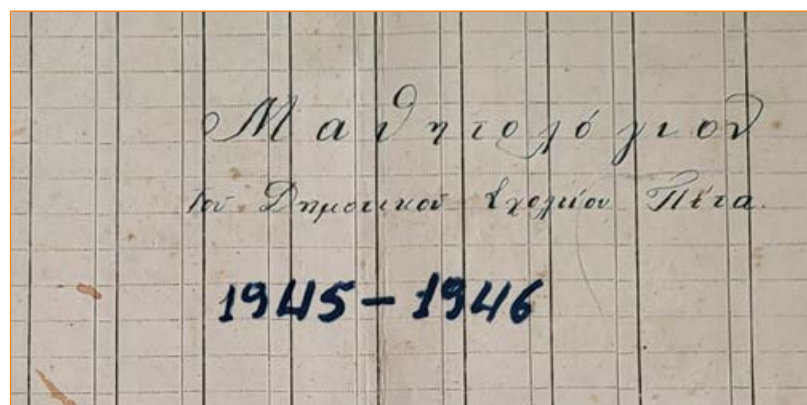 Μαθητολόγιον
του Δημοτικού Σχολείου Πέτα.
1945-1946